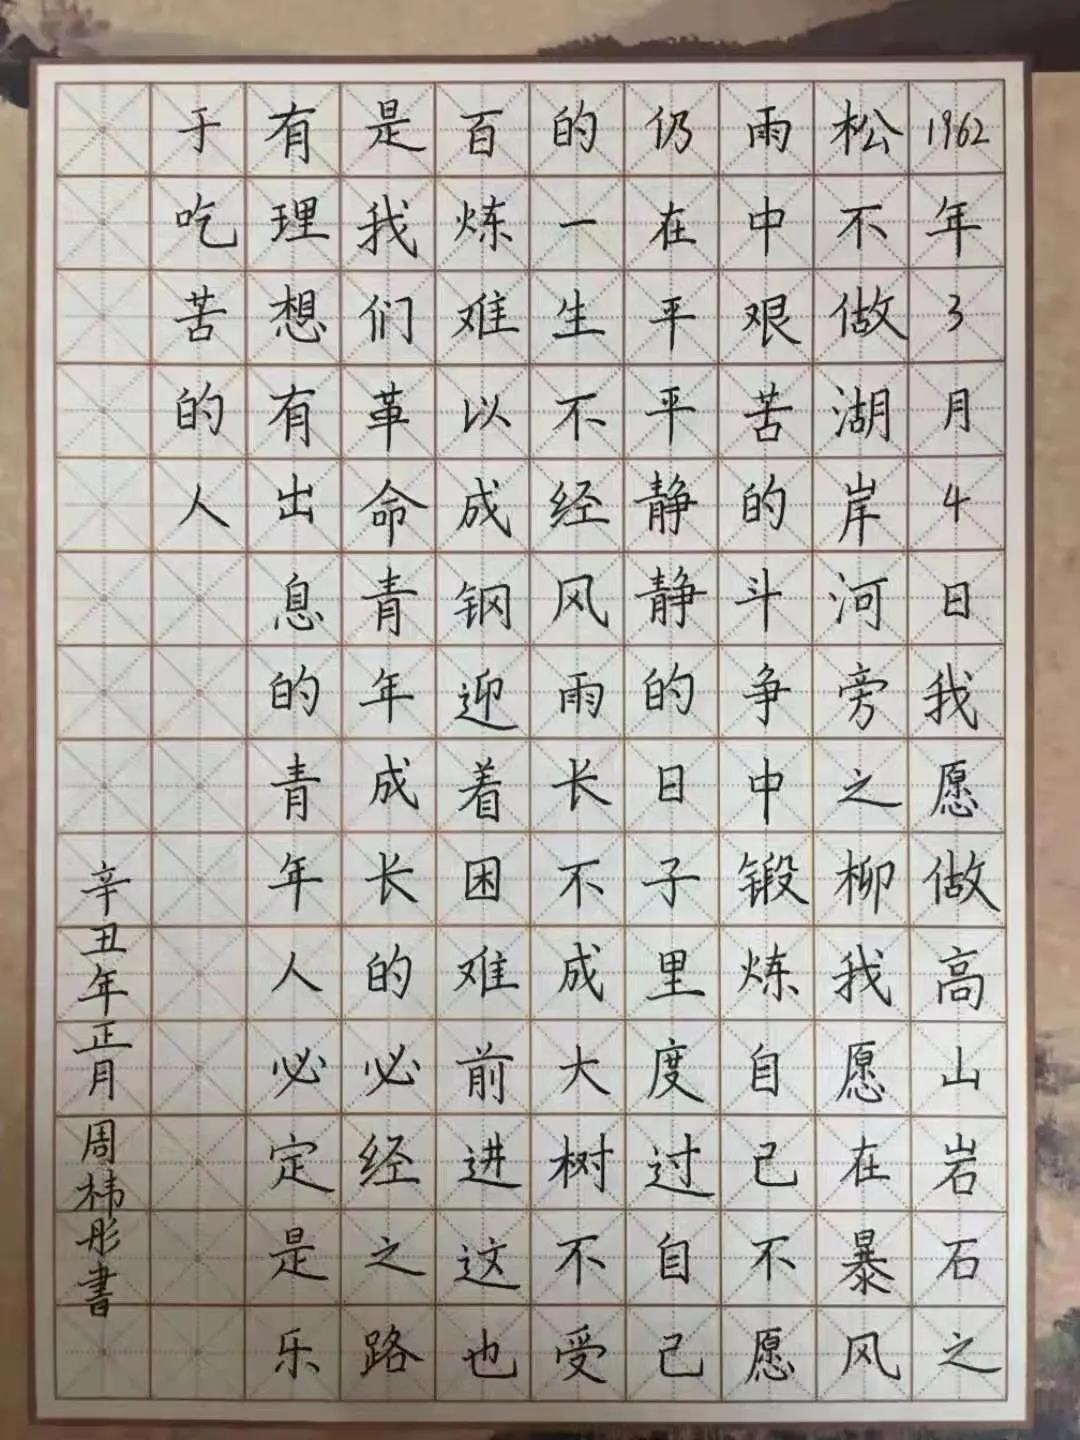 1962年3月4日我愿做高山岩石之
松不做湖岸河旁之柳我愿在暴风
雨中艰苦的斗争中锻炼自己不愿
仍在平平静静的日子里度过自己
的一生不经风雨长不成大树不受
百炼难以成钢迎着困难前进这也
是我们革命青年成长的必经之路
有理想有出息的青年人必定是乐
于吃苦的人
辛丑年正月周祎彤書